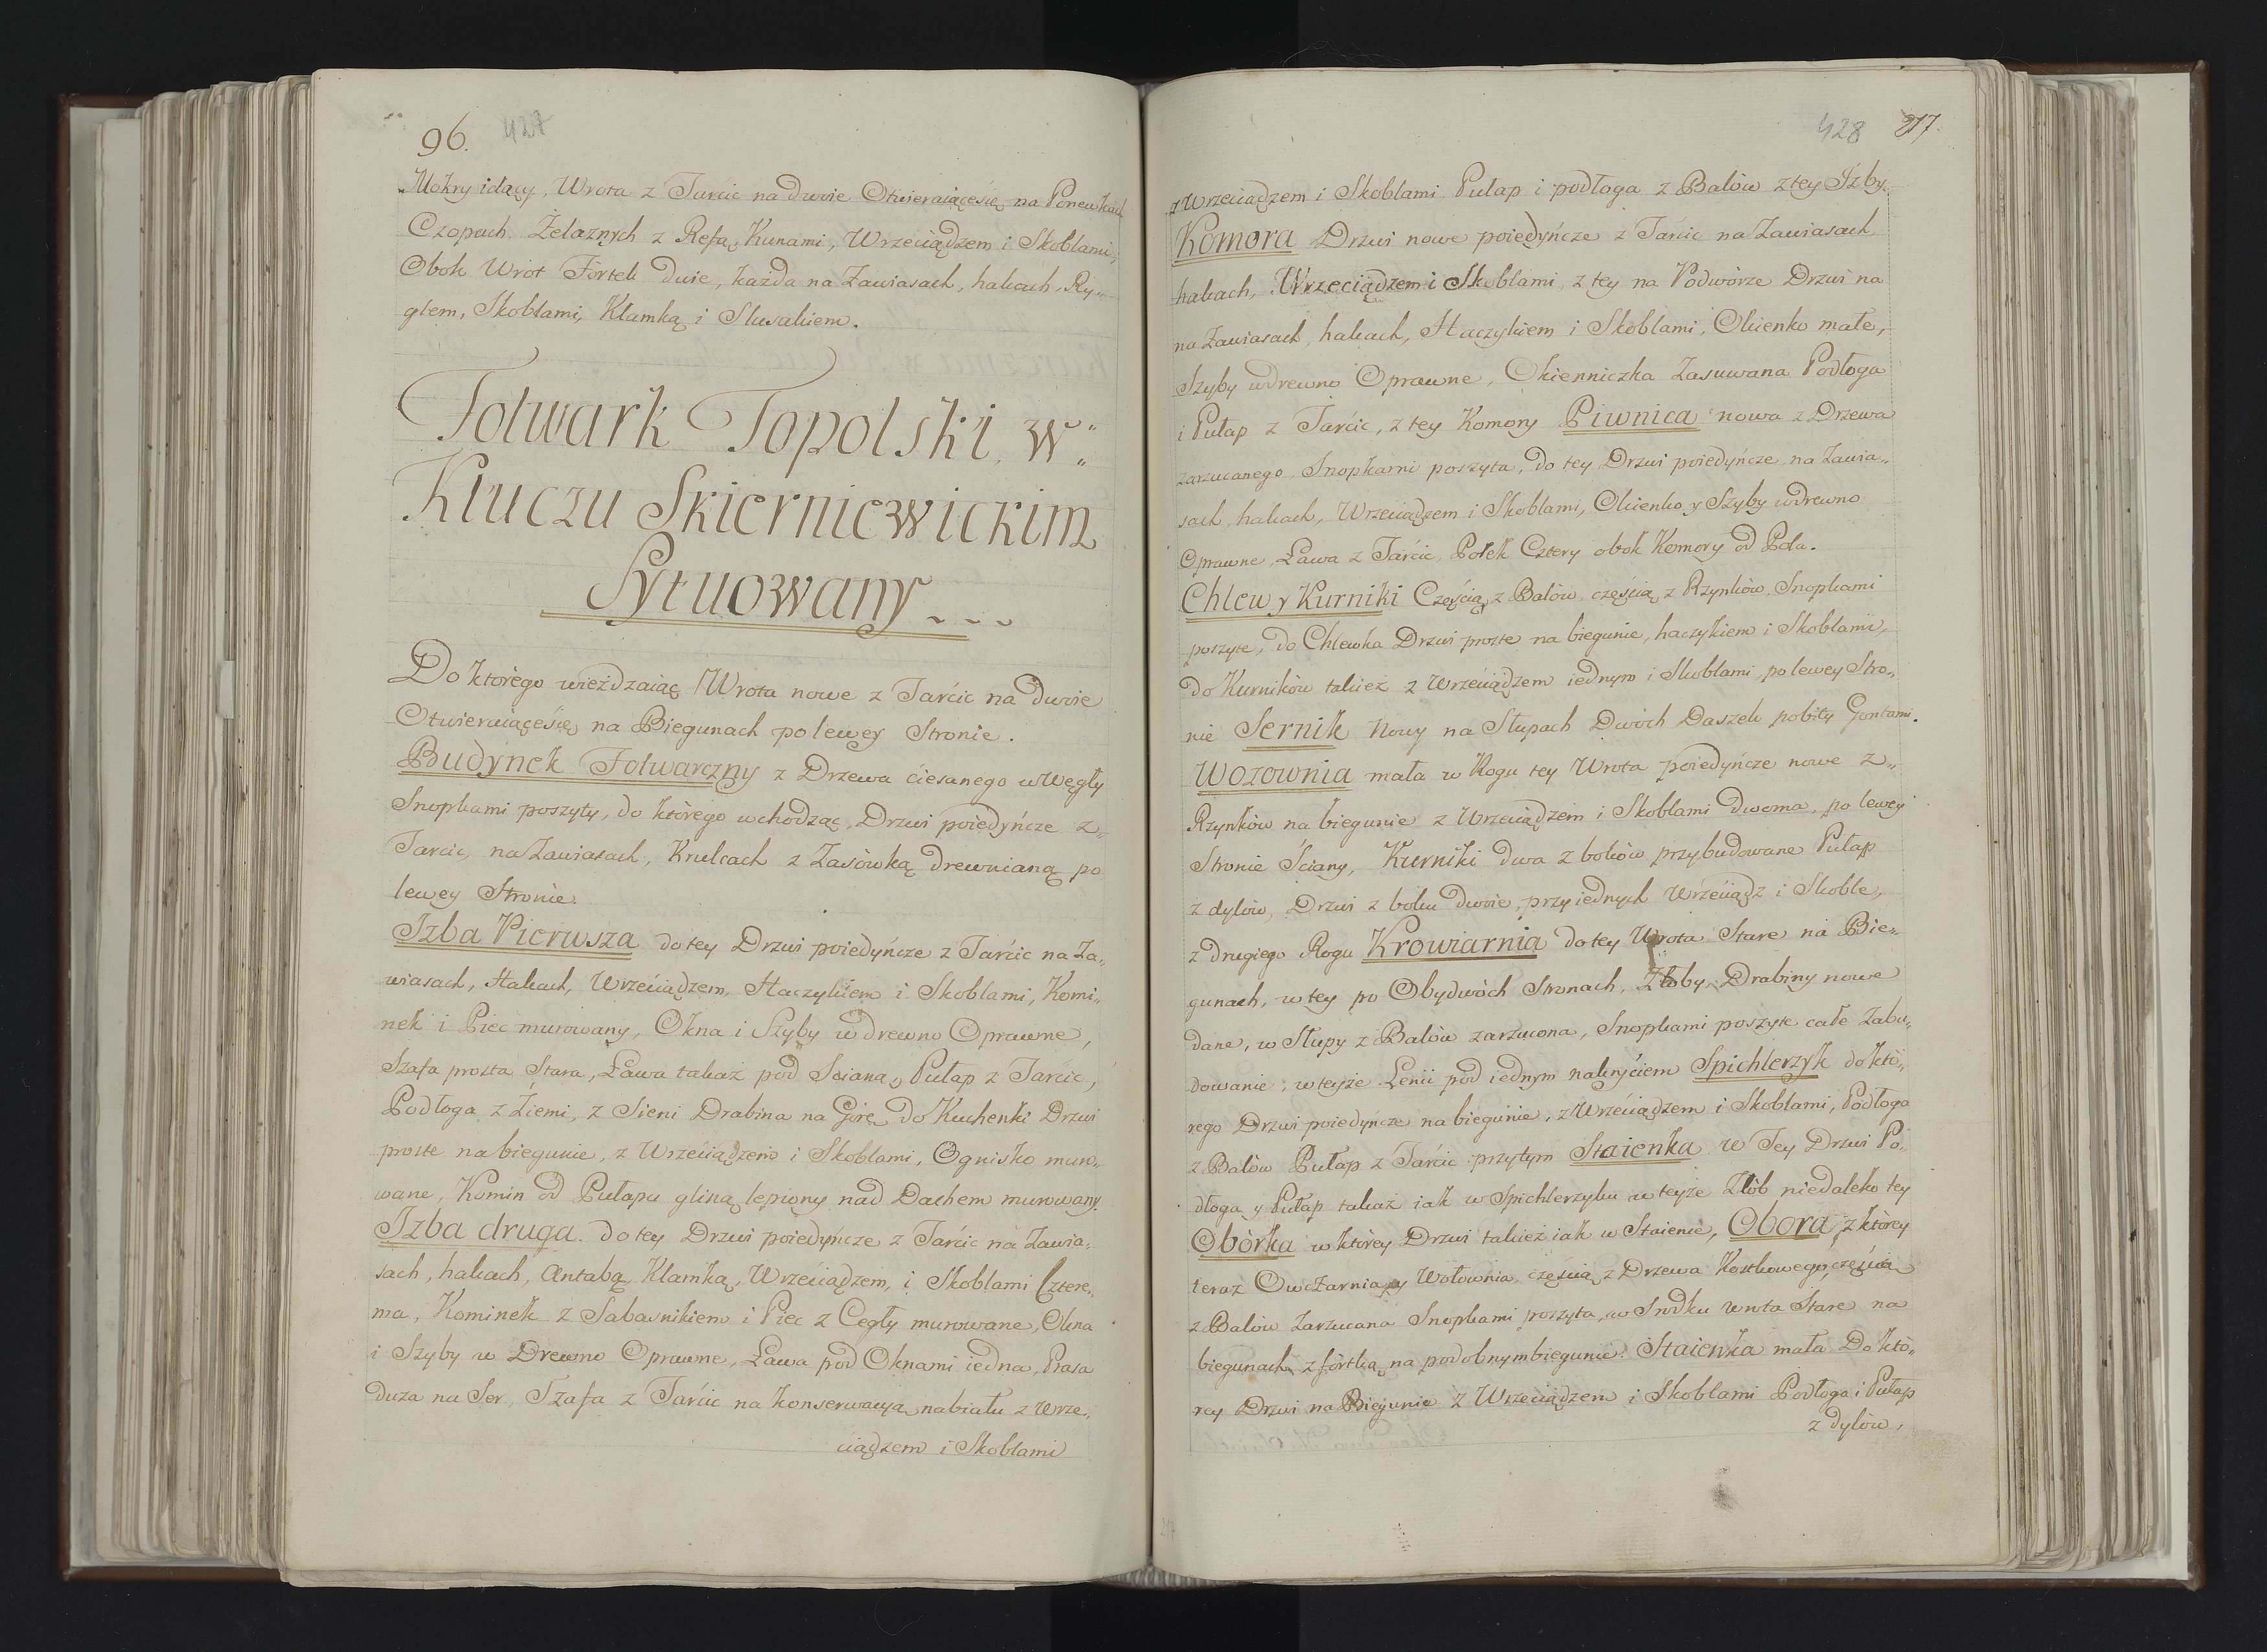 96. 427
Mokry idący, Wrota z Tarćic na dwoie Otwieraiącésię na Ponewkach
Czopach Żelaznych z Refą, Kunami, Wrzeciądzem i Skoblami;
Obok Wrot Fortek dwie, każda na Zawiasach, hakach, Ry„
glem, Skoblami, Klamką i Slusakiem.
Folwark Topolski w„
Kluczu Skierniewickim
Sytuowany
Do ktorego wieżdzaiąc Wrota nowe z Tarćic na dwoie
Otwieraiącésię na Biegunach po lewey Stronie.
Budynek Folwarczny z Drzewa ćiesanego w Węgły
Snopkami poszyty, do którego wchodząc, Drzwi poiedyńcze z„
Tarcic, na Zawiasach, Krulcach z Zasówką drewnianą po
lewey Stronie.
Izba Pierwsza do tey Drzwi poiedyńcze z Tarćic na Za„
wiasach, Hakach, Wrzeciądzem, Haczykiem i Skoblami, Komi„
nek i Piec murowany, Okna i Szyby w drewno Oprawne,
Szafa prosta Stara, Ława takaż pod Sciana, Pułap z Tarćic,
Podłoga z Ziemi, z Sieni Drabina na Górę do Kuchenki Drzwi
proste na biegunie, z Wrzeciądzem i Skoblami, Ognisko muro„
wane, Komin od Pułapu gliną lepiony nad Dachem murowany.
Izba druga. do tey Drzwi poiedyńcze z Tarćic na Zawia„
sach, hakach, Antabą, Klamką, Wrzeciądzem, i Skoblami Cztere„
ma, Kominek z Sabasnikiem i Piec z Cegły murowane, Okna
i Szyby w Drewno Oprawne, Ława pod Oknami iedna, Prasa
duza na Ser, Szafa z Tarćic na konserwacyą nabiału z Wrze„
ciądzem i Skoblami
428 217.
z Wrzeciądzem i Skoblami Pułap i podłoga z Balów z tey Izby
Komora Drzwi nowe poiedyńcze z Tarćic na Zawiasach
hakach, Wrzeciądzem i Skoblami z tey na Podwórze Drzwi na
na Zawiasach, hakach, Haczykiem i Skoblami, Okienko małe,
Szyby wdrewno Oprawne, Okienniczka Zasuwana Podłoga
i Pułap z Tarćic, z tey Komory Piwnica nowa z Drzewa
zarzucanego Snopkami poszyta, do tey Drzwi poiedyńcze na Zawia„
sach, hakach, Wrzeciądzem i Skoblami, Okienko y Szyby wdrewno
Oprawne Ława z Tarćic, Połek Cztery obok Komory od Pola.
Chlew y Kurniki Częścią z Balów częścią z Rzynków, Snopkami
poszyte, do Chlewka Drzwi proste na biegunie, haczykiem i Skoblami,
do Kurników takież z Wrzeciądzem iednym i Skoblami po lewey Stro„
nie Sernik Nowy na Słupach Dwóch Daszek pobity Gontami.
Wozownia mała w Rogu tey Wrota poiedyńcze nowe z„
Rzynków na biegunie z Wrzeciądzem i Skoblami dwoma, po lewey
Stronie Ściany, Kurniki dwa z boków przybudowane Pułap
z dylów, Drzwi z boku dwoie, przy iednych Wrzeciądz i Skoble,
z drugiego Rogu Krowiarnia do tey Wrota Stare na Bie„
gunach, w tey po Obydwóch Stronach, Żłoby, Drabiny nowe
dane, w Słupy z Balów zarzucona, Snopkami poszyte całe Zabu„
dowanie; w teyże Lenii pod iednym nakryćiem Spichlerzyk do któ„
rego Drzwi poiedyńcze na biegunie, z Wrzeciądzem i Skoblami, Podłoga
z Balów Pułap z Tarćic przytym Staienka w Tey Drzwi Po„
dłoga y Pułap takaż iak w Spichlerzyku w teyże Żłób niedaleko tey
Obórka w którey Drzwi takież iak w Staience, Obora z którey
teraz Owczarnia y Wołownia, częscią z Drzewa Kostkowego, częscią
z Balów Zarzucana Snopkami poszyta, w Srodku Wrota Stare na
biegunach z fórtką na podobnym biegunie. Staienka mała Do któ„
rey Drzwi na Biegunie z Wrzeciądzem i Skoblami Podłoga i Pułap
z dylów,